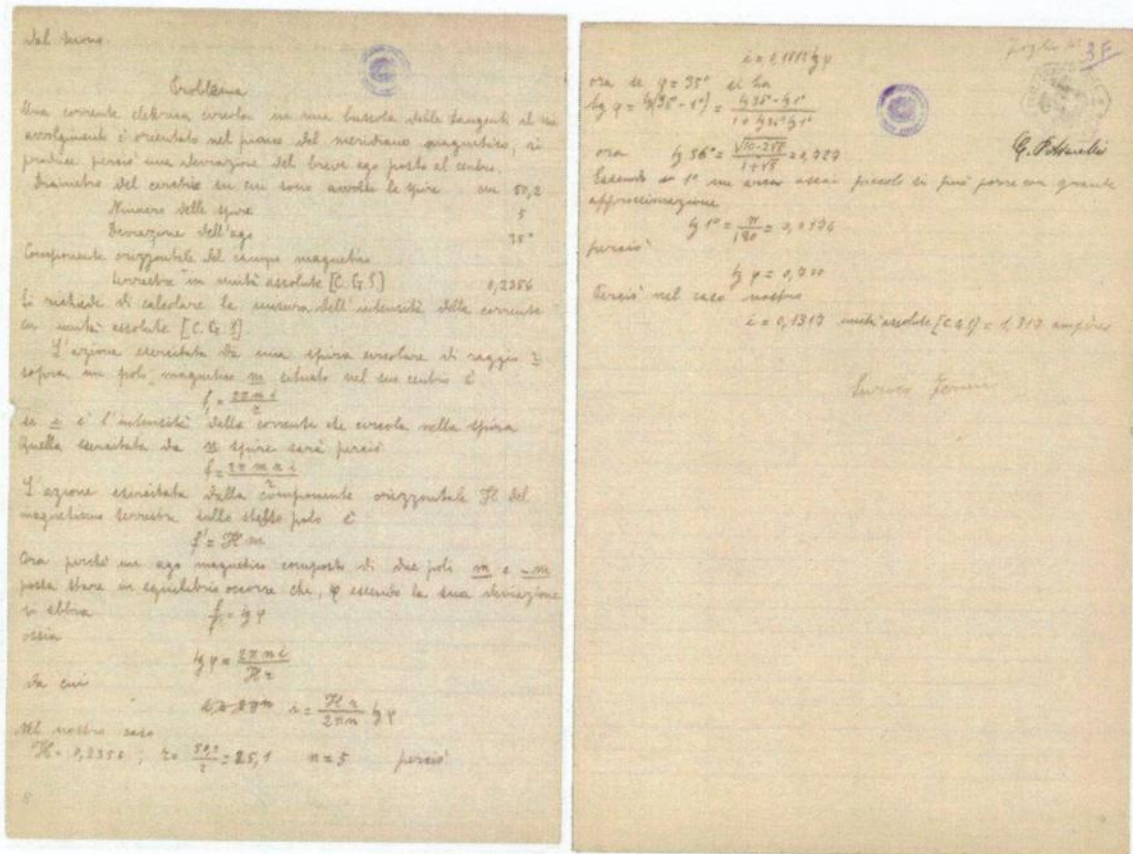 del suono
Problema
Una corrente elettrica circola in una bussola delle tangenti il cui
avvolgimento è orientato nel piano del meridiano magnetico, si
produce perciò una deviazione del breve ago posto al centro.
Diametro del cerchio su cui sono avvolte le spire cm 50,2
Numero delle spire 5
Deviazione dell'ago 35°
Componente orizzontale del campo magnetico
terrestre in unità assolute [C.G.S] 0,2356
Si richiede di calcolare la misura dell'intensità della corrente
in unità assolute [C.G.S]
L'azione esercitata da una spira circolare di raggio r
sopra un polo magnetico m situato nel suo centro è
f₁ = 2πmi/r
se i è l'intensità della corrente che circola nella spira
Quella esercitata da n spire sarà perciò
f = 2πmni/r
L'azione esercitata dalla componente orizzontale H del
magnetismo terrestre sullo stesso polo è
f' = Hm
Ora perché un ago magnetico composto di due poli m e -m
possa stare in equilibrio occorre che, φ essendo la sua deviazione
si abbia f/f' = tg φ
ossia
tg φ = 2πni/Hr
da cui
i = Hr/2πn tg φ
Nel nostro caso
H = 0,2356 ; r = 50,2/2 = 25,1 n = 5 perciò
Foglio N° 3F
i = 0,1882 tg φ
ora se φ = 35° si ha
tg φ = tg(36° - 1°) = tg 36° - tg 1° / 1 + tg 36° tg 1°
ora tg 36° = √10-2√5 / 1+√5 = 0,727
G. Pittarelli
Essendo 1° un arco assai piccolo si può porre con grande
approssimazione
tg 1° = π/180 = 0,0174
perciò
tg φ = 0,700
Perciò nel caso nostro
i = 0,1317 unità assolute [C.G.S] = 1,317 ampères
Enrico Fermi